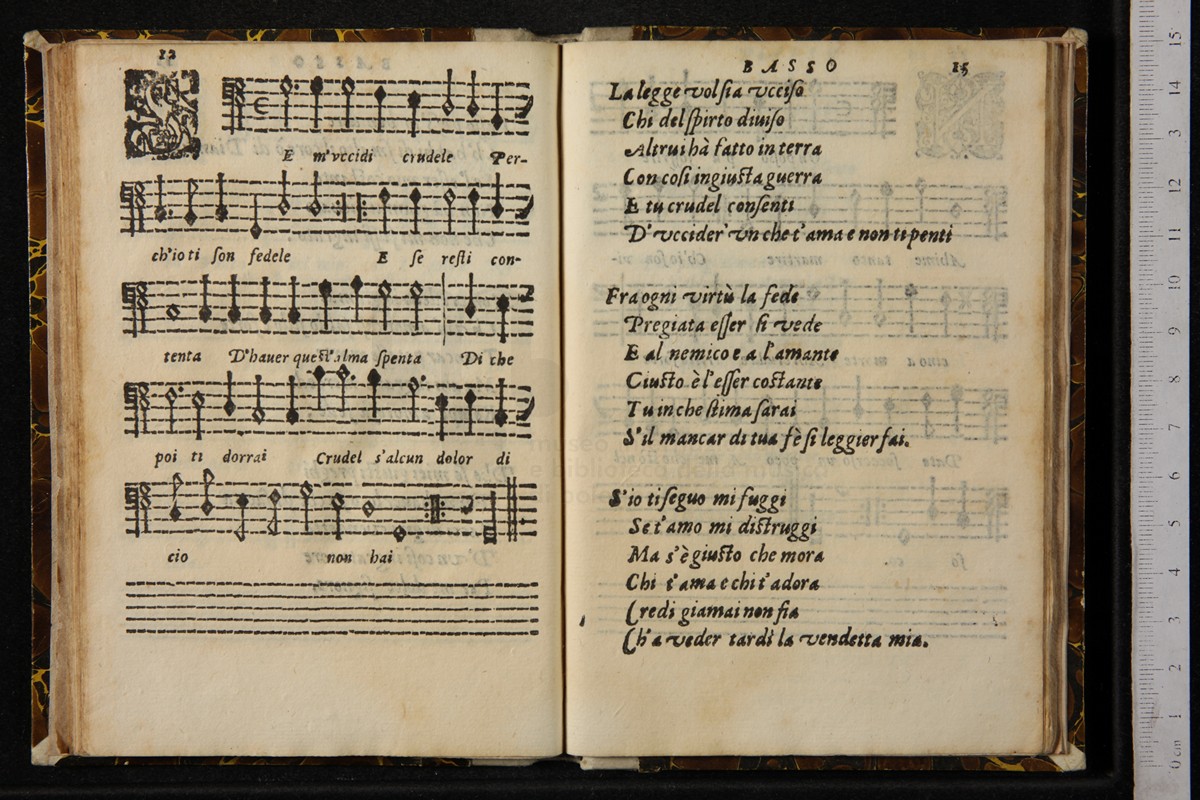 12
S
E m'vccidi crudele Per-
ch'io ti son fedele E se resti con-
tenta D'hauer quest'alma spenta Di che
poi ti dorrai Crudel s'alcun dolor di
cio non hai
BASSO 15
La legge vol sia vcciso
Chi del spirto diuiso
Altrui hà fatto in terra
Con cosi ingiusta guerra
E tu crudel consenti
D'vccider' vn che t'ama e non ti penti
Fra ogni virtù la fede
Pregiata esser si vede
E al nemico e a l'amante
Giusto è l'esser costante
Tu in che stima sarai
S'il mancar di tua fè si leggier fai.
S'io ti seguo mi fuggi
Se t'amo mi distruggi
Ma s'è giusto che mora
Chi t'ama e chi t'adora
Credi giamai non fia
Ch'a veder tardi la vendetta mia.
museo
e biblioteca della musica
0 cm 1 2 3 4 5 6 7 8 9 10 11 12 13 14 15